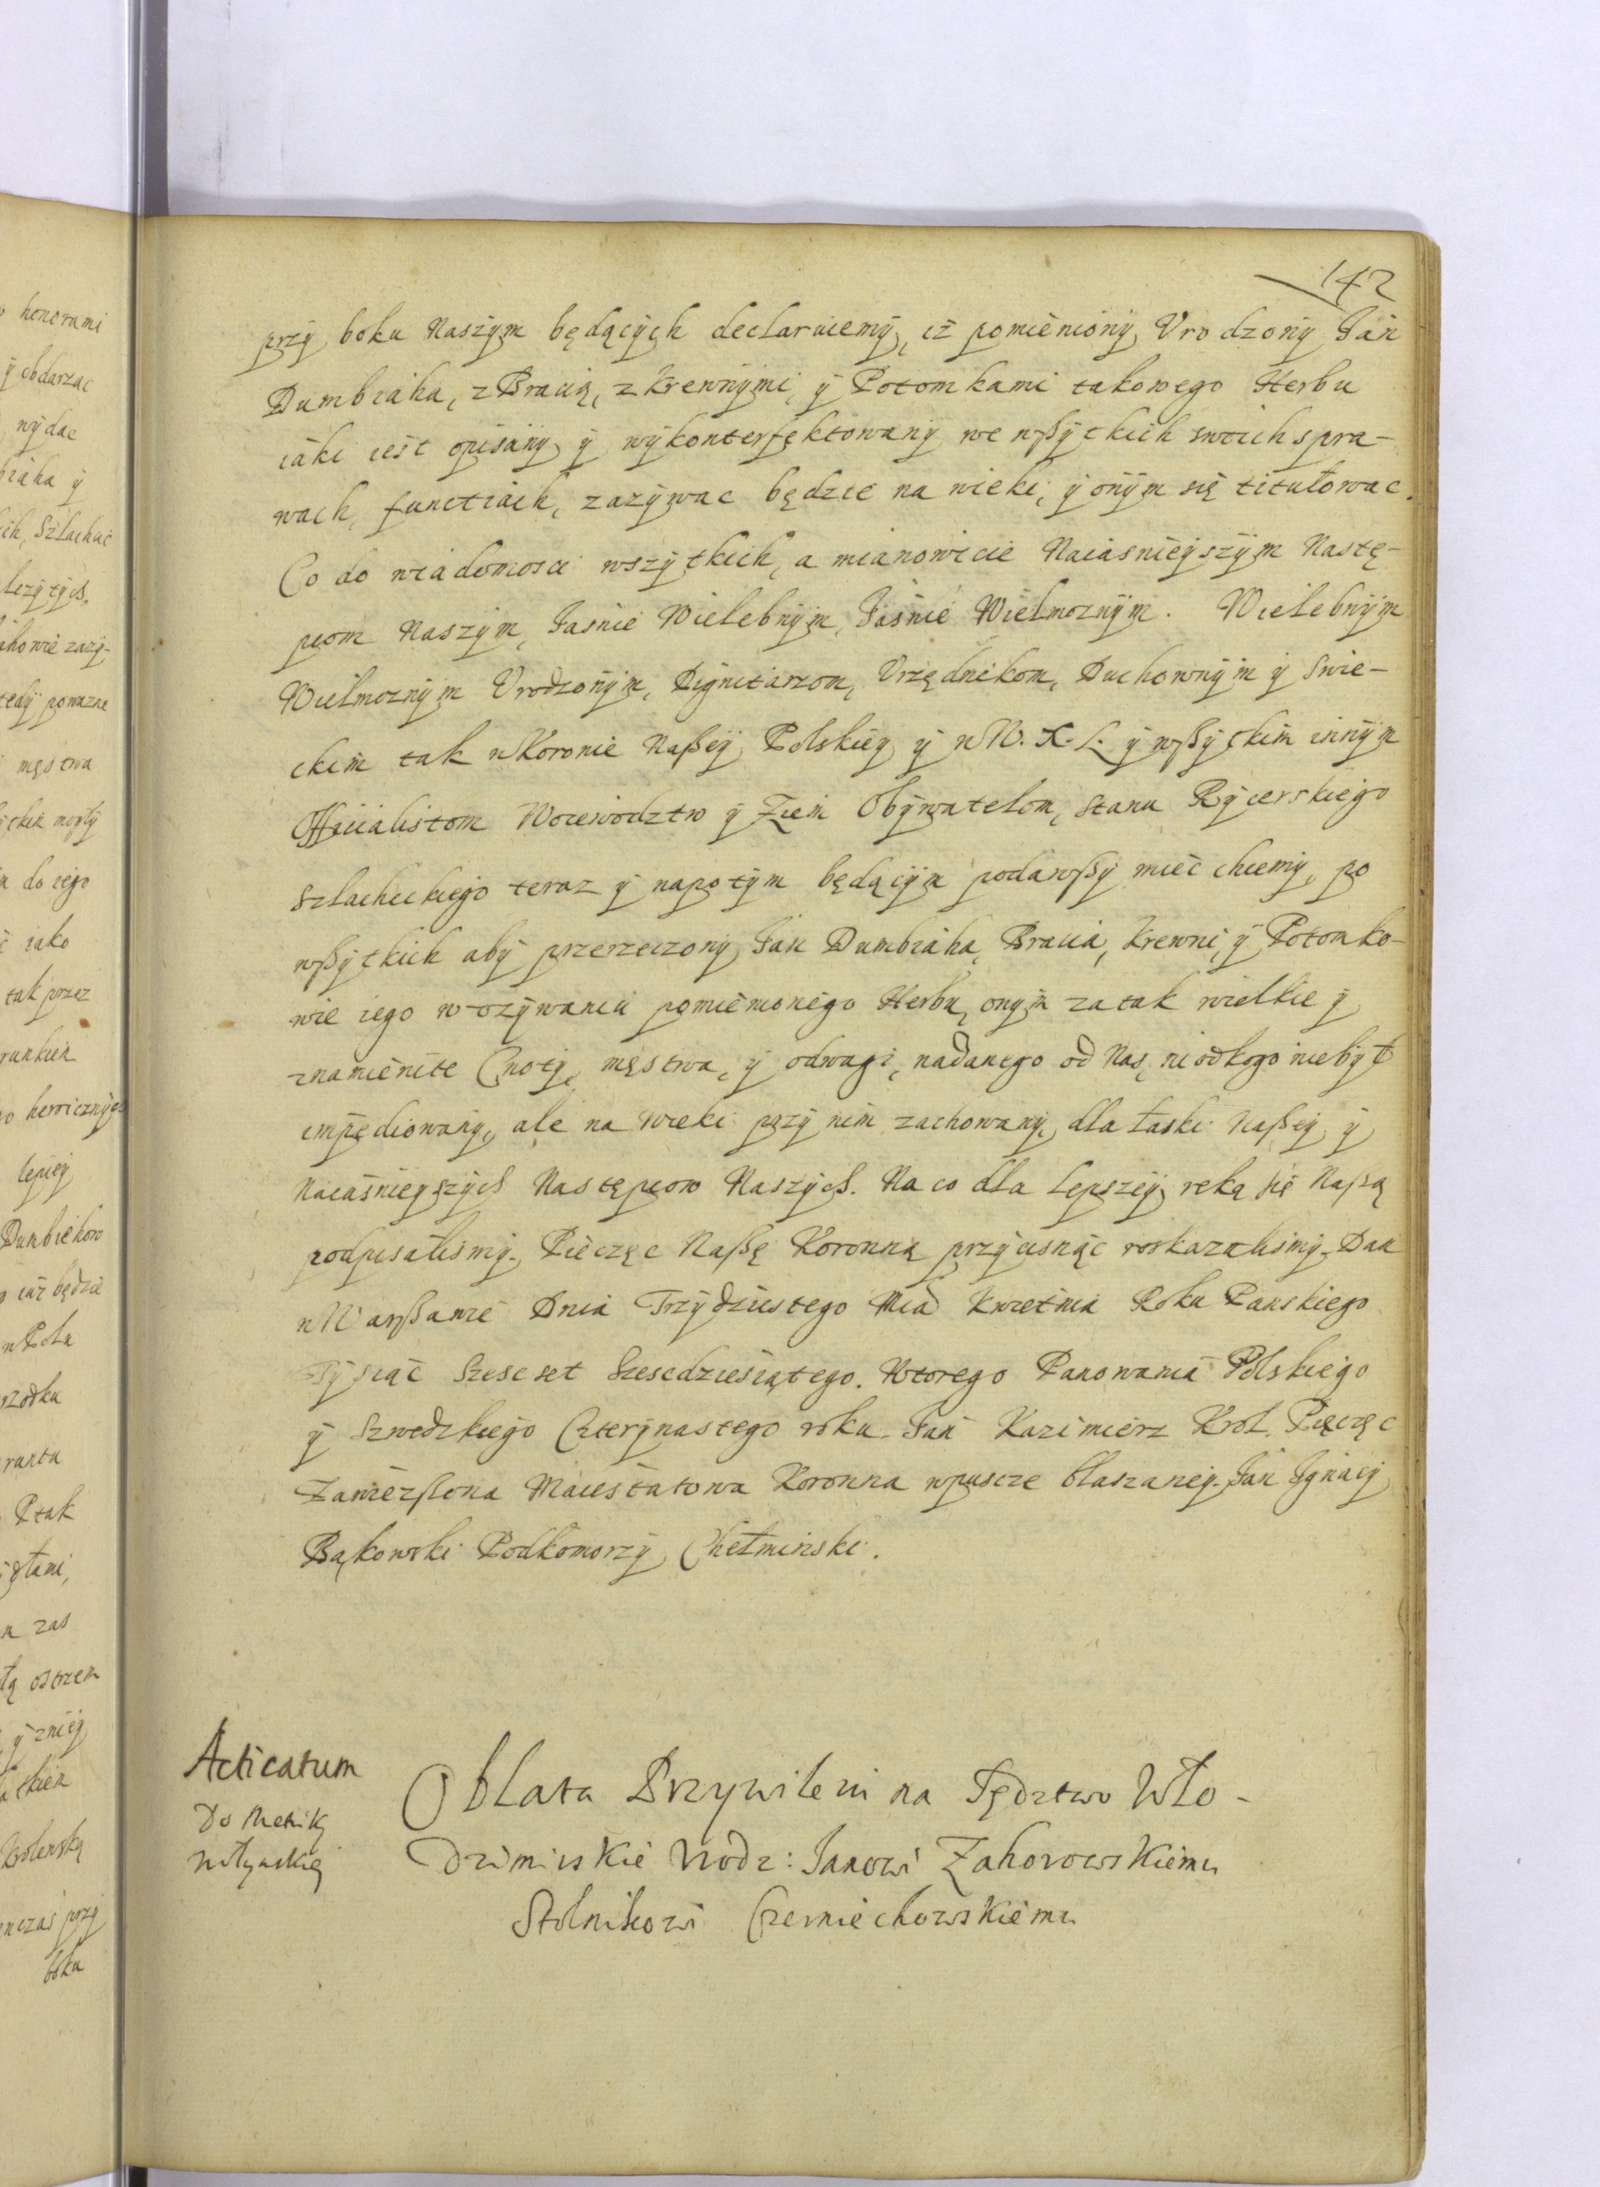 142
przy boku Naszym będących declaruiemy, iż pomieniony Vrodzony Jan
Dumbiaha, z Bracią, z krewnymi, y Potomkami takowego Herbu
iaki iest opisany y wykonterfektowany we wszytkich swoich spra-
wach, functiach, zazywac będzie na wieki, y onym się titułowac.
Co do wiadomosci wszytkich, a mianowicie Naiasnieyszym Nastę-
pcom Naszym, Jasnie Wielebnym, Jasnie Wielmoznym. Wielebnym
Wielmoznym Vrodzonym, Dignitarzom, Vrzędnikom, Duchownym y Swie-
ckim tak w Koronie Naszey Polskiey y w W. X. L. y wszytkim innym
Officialistom Woiewodztw y Ziem Obywatelom, Stanu Rycerskiego
Szlacheckiego teraz y napotym będącym podawszy miec chcemy, po
wszytkich aby przerzeczony Jan Dumbiaha, Bracia, krewni, y Potomko-
wie iego w uzywaniu pomienionego Herbu, onym za tak wielkie y
znamienite Cnoty, męstwa, y odwagi, nadanego od Nas, ni od kogo nie był
impediowany, ale na wieki przy nim zachowany, dla łaski Naszey y
Naiasnieyszych Następcow Naszych. Na co dla lepszey reką się Naszą
podpisalismy. Pieczęc Naszę Koronną przycisnąc roskazalismy. Dan
w Warszawie Dnia Trzydziestego Mca Kwietnia Roku Panskiego
Tysiąc Szescset Szescdziesiątego. Wtorego Panowania Polskiego
y Szwedzkiego Czternastego roku. Jan Kazimierz Krol. Pieczęc
Zawieszona Maiestatowa Koronna w puszce blaszaney. Jan Ignacy
Bąkowski Podkomorzy Chełminski.
Acticatum
Do Metriky
wołynskiey
Oblata Przywileiu na Sędztwo Wło-
dzimirskie Urodz: Janowi Zahorowskiemu
Stolnikowi Czerniechowskiemu